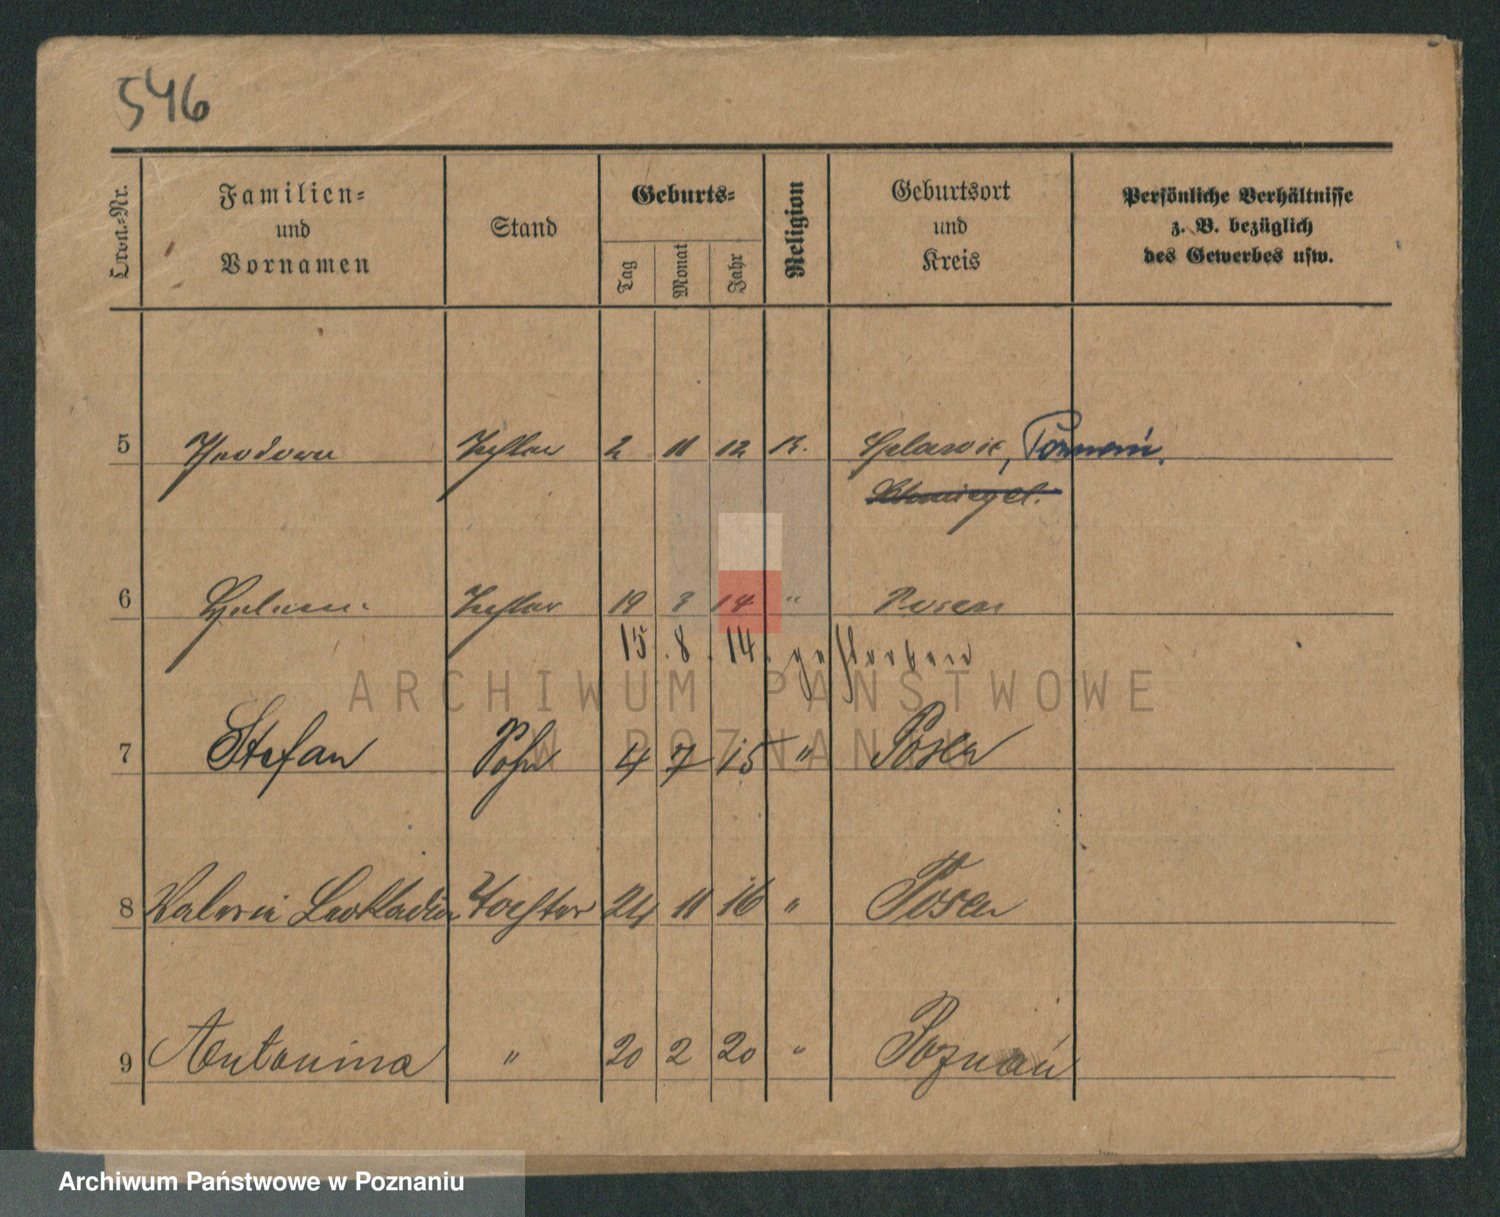 546
Ordn.-Nr.
Familien-
und
Vornamen
Stand
Geburts-
Tag
Monat
Jahr
Religion
Geburtsort
und
Kreis
Persönliche Verhältnisse
z. B. bezüglich
des Gewerbes usw.
5 Theodora Tochter 2 11 12 k. Poznań.
Schmiegel.
6 Tochter 19 14 " Posen
15. 8. 14. gestorben
ARCHIWUM PAŃSTWOWE
W POZNANIU
7 Stefan Sohn 4 7 15 " Posen
8 Valerie Leokadia Tochter 24 11 16 " Posen
9 Antonina " 20 2 20 " Poznań
Archiwum Państwowe w Poznaniu